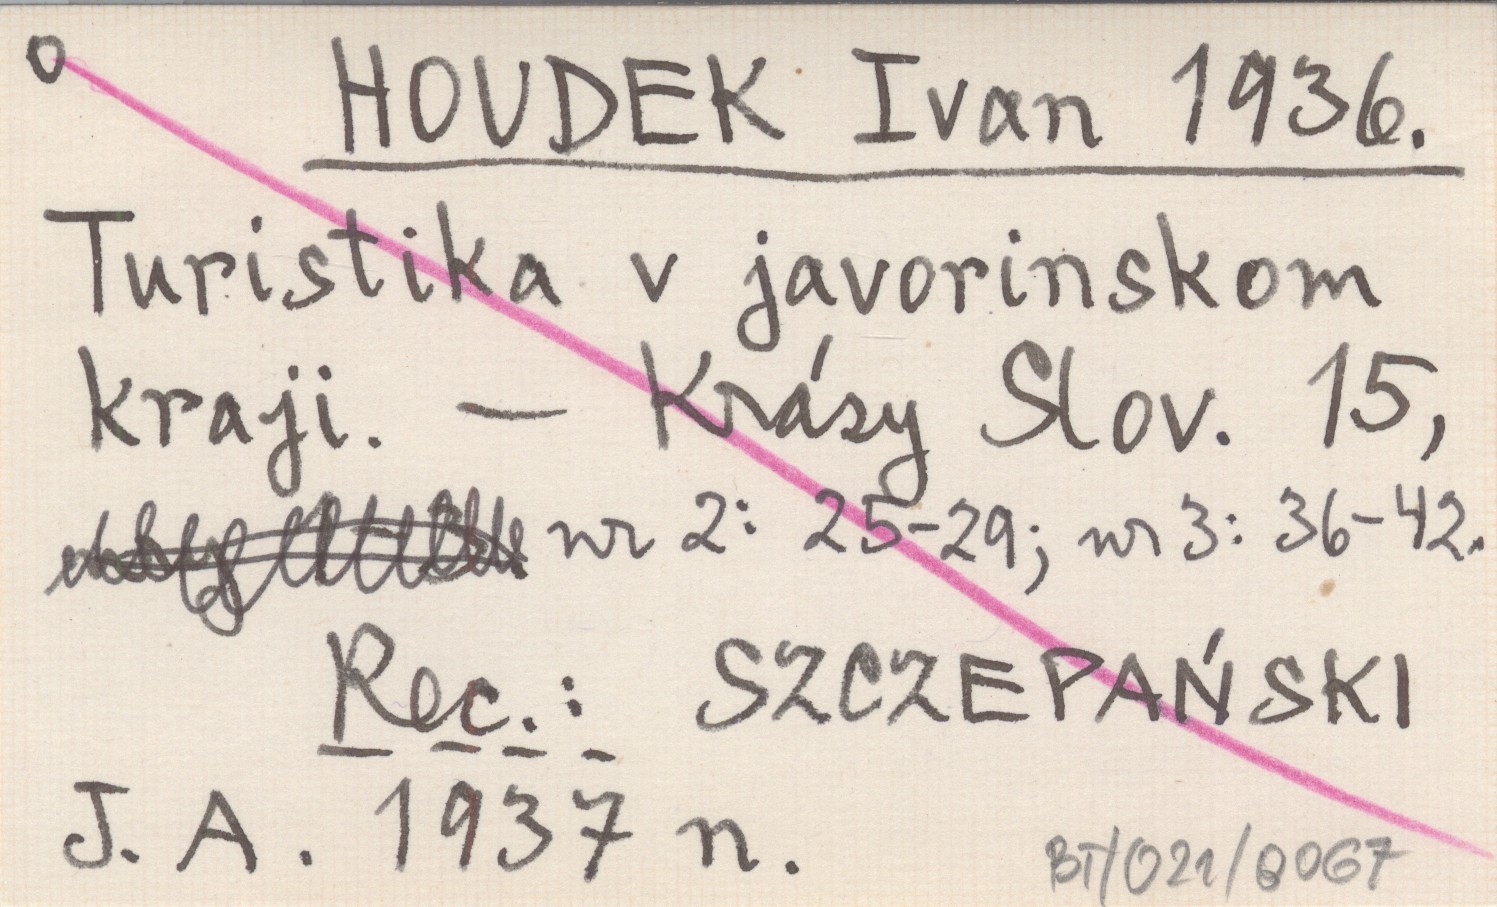 O HOUDEK Ivan 1936.
Turistika v javorinskom
kraji. — Krásy Slov. 15,
nr 2: 25-29; nr 3: 36-42.
Rec.: SZCZEPAŃSKI
J. A. 1937 n.
BT/021/0067